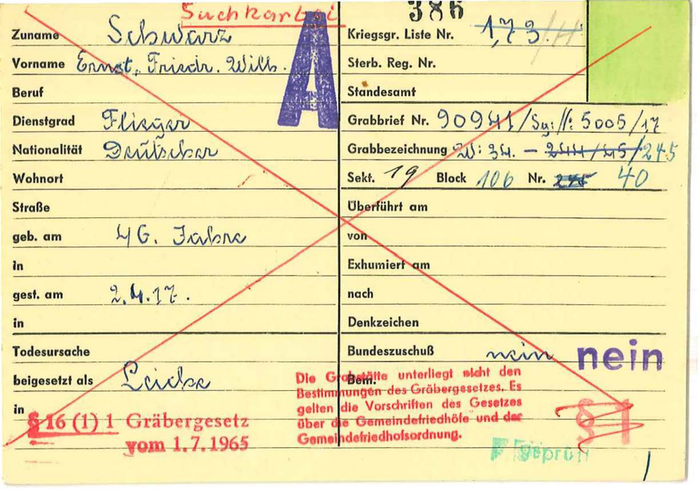 Suchkartei
386
Zuname Schwarz
Vorname Ernst, Friedr. Wilh.
Beruf
Dienstgrad Flieger
Nationalität Deutscher
Wohnort
Straße
geb. am 46. Jahre
in
gest. am 2.4.17.
in
Todesursache
beigesetzt als Leiche
in
§ 16 (1) 1 Gräbergesetz
vom 1.7.1965
A
Kriegsgr. Liste Nr. 173
Sterb. Reg. Nr.
Standesamt
Grabbrief Nr. 90941/Sg:// 5005/17
Grabbezeichnung W: 34. - 244/45/245
Sekt. 19 Block 106 Nr. 245 40
Überführt am
von
Exhumiert am
nach
Denkzeichen
Bundeszuschuß nein nein
Bem.
Die Grabstätte unterliegt nicht den
Bestimmungen des Gräbergesetzes. Es
gelten die Vorschriften des Gesetzes
über die Gemeindefriedhöfe und der
Gemeindefriedhofsordnung.
§ 1
Geprüft